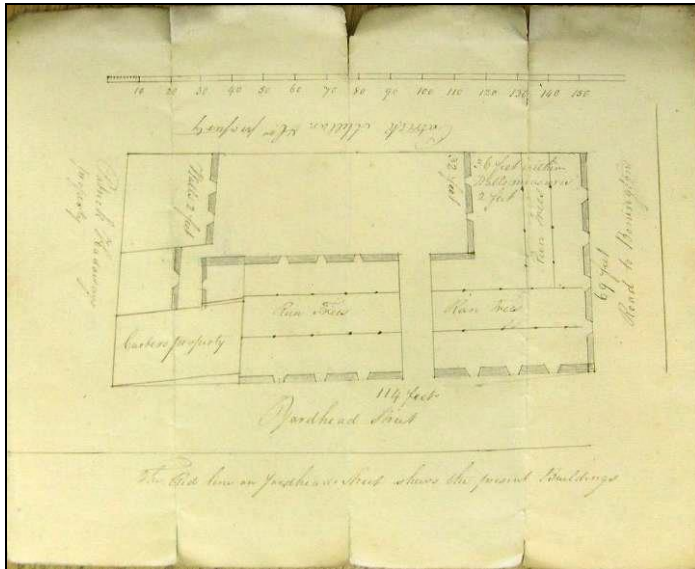 10 20 30 40 50 60 70 80 90 100 110 120 130 140 150
Patrick property
Patrick
property
Walls 2 feet
32 feet
36 feet within
Walls measure
2 feet
Ran Trees
69 feet
Road to Bonnington
Run Trees
Ran Trees
property
114 feet
Yardhead Street
The Red line on Yardhead Street shews the present Buildings